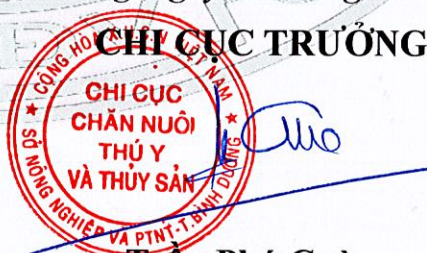 CHI CỤC TRƯỞNG
CỘNG HÒA X.H.C.N VIỆT NAM
CHI CỤC
CHĂN NUÔI
THÚ Y
VÀ THỦY SẢN
SỞ NÔNG NGHIỆP VÀ PTNT-T.BÌNH DƯƠNG